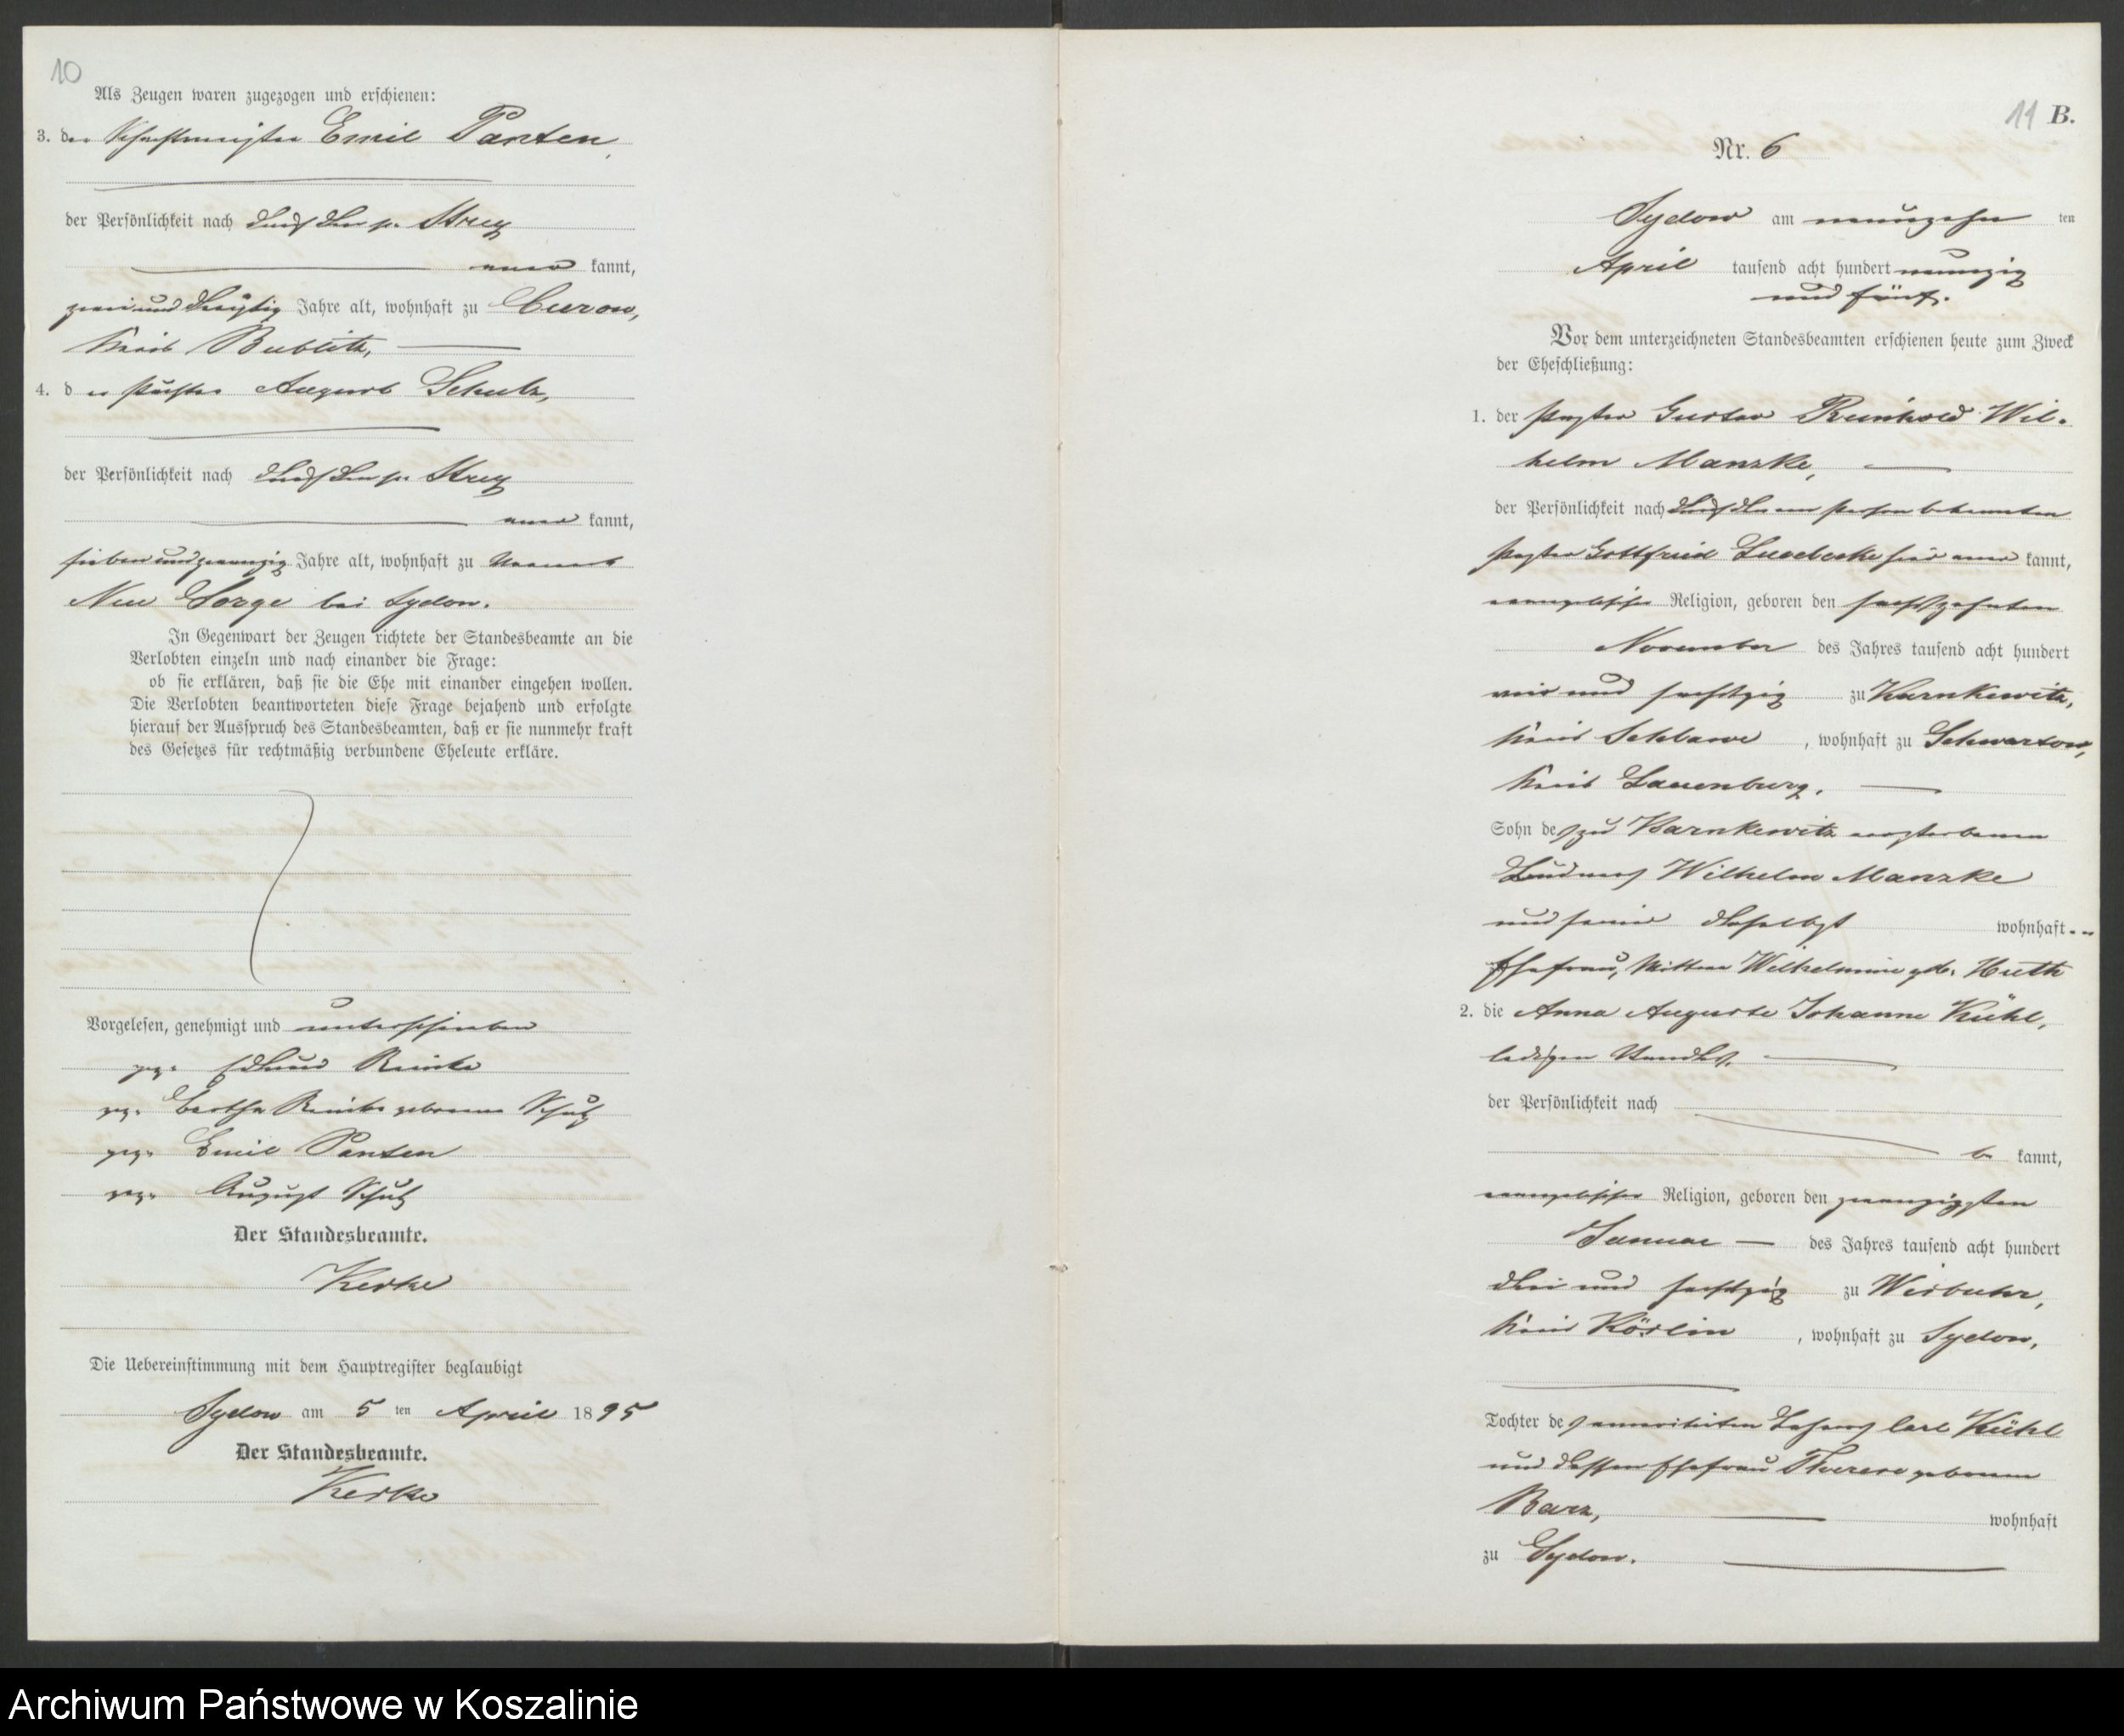 10
Als Zeugen waren zugezogen und erschienen:
3. der Emil Panten,
der Persönlichkeit nach durch den p. Strey
aner kannt,
zwei und dreißig Jahre alt, wohnhaft zu Curow,
Kreis Bublitz,
4. d er Pächter August Schulz,
der Persönlichkeit nach durch den p. Strey
aner kannt,
sieben und zwanzig Jahre alt, wohnhaft zu
Neu Sorge bei Sydow.
In Gegenwart der Zeugen richtete der Standesbeamte an die
Verlobten einzeln und nach einander die Frage:
ob sie erklären, daß sie die Ehe mit einander eingehen wollen.
Die Verlobten beantworteten diese Frage bejahend und erfolgte
hierauf der Ausspruch des Standesbeamten, daß er sie nunmehr kraft
des Gesetzes für rechtmäßig verbundene Eheleute erkläre.
Vorgelesen, genehmigt und unterschrieben
gez. Eduard Reinke
gez. Bertha Reinke geborene Schulz
gez. Emil Panten
gez. August Schulz
Der Standesbeamte.
Kerke
Die Uebereinstimmung mit dem Hauptregister beglaubigt
Sydow am 5 ten April 1895
Der Standesbeamte.
Kerke
11 B.
Nr. 6
Sydow am neunzehn ten
April tausend acht hundert neunzig
und fünf.
Vor dem unterzeichneten Standesbeamten erschienen heute zum Zweck
der Eheschließung:
1. der Pastor Gustav Reinhold Wil-
helm Manzke,
der Persönlichkeit nach durch den von Person bekannten
Pastor Gottfried Luedecke hier aner kannt,
evangelischer Religion, geboren den sechszehnten
November des Jahres tausend acht hundert
ein und sechszig zu Karnkewitz,
Kreis Schlawe, wohnhaft zu Schwartow,
Kreis Lauenburg.
Sohn des zu Karnkewitz verstorbenen
Wilhelm Manzke
und seiner daselbst wohnhaften
Ehefrau, Wilhelmine geb. Huth
2. die Anna Auguste Johanne Kühl,
ledigen Standes.
der Persönlichkeit nach
be kannt,
evangelischer Religion, geboren den zwanzigsten
Januar des Jahres tausend acht hundert
drei und sechszig zu Wisbuhr,
Kreis Köslin, wohnhaft zu Sydow,
Tochter des emeritirten Lehrers Carl Kühl
und dessen Ehefrau Therese geborene
Barz, wohnhaft
zu Sydow.
Archiwum Państwowe w Koszalinie